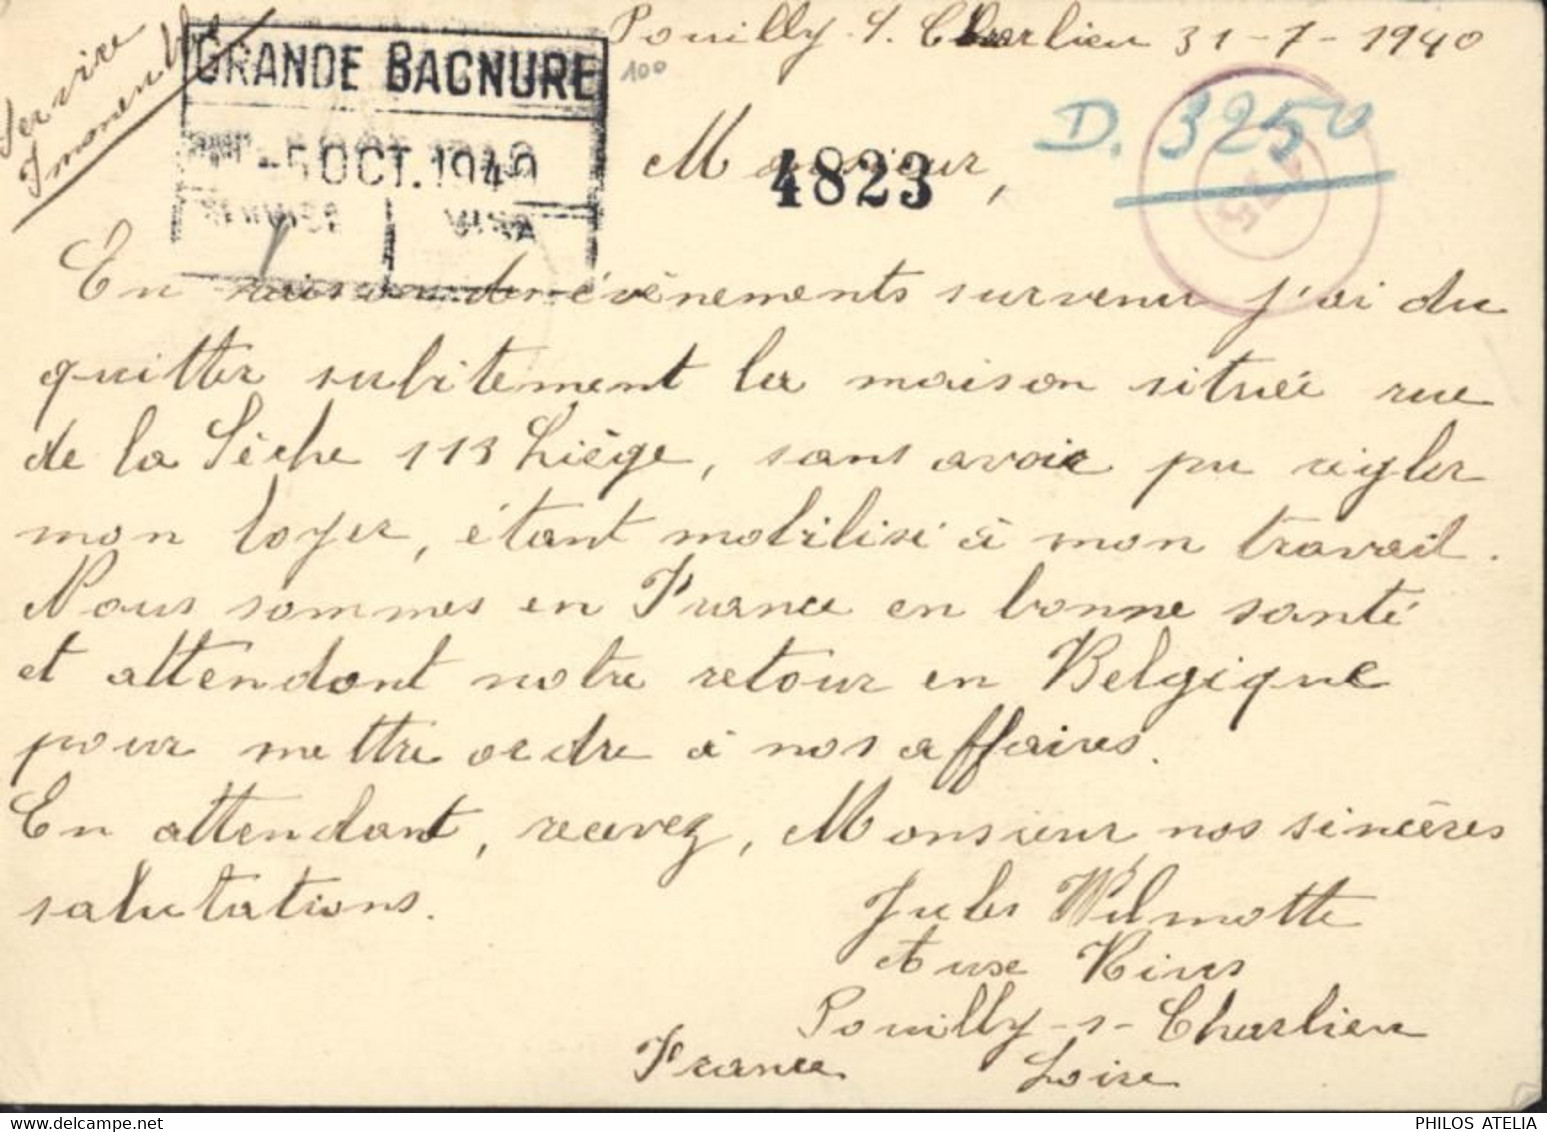 Service
Immeubles
GRANDE BACNURE
-5 OCT. 1940
SERVICE VISA
Pouilly-s. Charlieu 31-7-1940
100
D. 3250
Monsieur,
4823
En raison des évènements survenus j'ai du
quitter subitement la maison située rue
de la Sèche 113 Liège, sans avoir pu régler
mon loyer, étant mobilisé à mon travail.
Nous sommes en France en bonne santé
et attendant notre retour en Belgique
pour mettre ordre à nos affaires.
En attendant, recevez, Monsieur nos sincères
salutations.
Jules Wilmotte
Pouilly-s-Charlieu
France Loire
PHILOS ATELIA